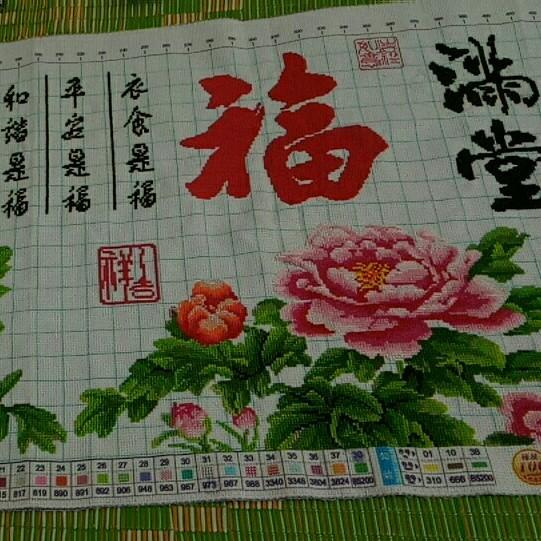 满堂
福
衣食是福
平安是福
和谐是福
吉祥
21 22 23 24 25 26 27 28 29 30 31 32 33 34 35 36 37 30 01 10 38
817 819 890 891 902 906 946 963 957 973 987 988 3340 3348 3804 3824 B5200 310 666 B5200